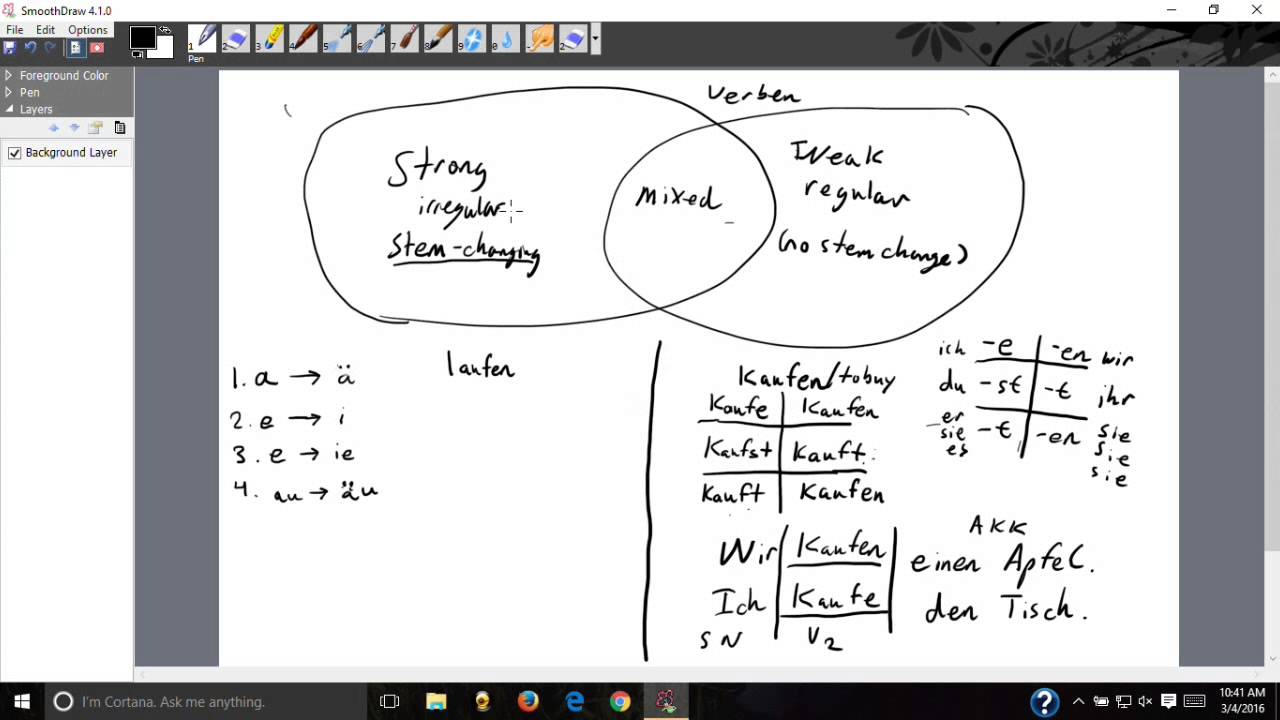 SmoothDraw 4.1.0
File Edit Options
1 2 3 4 5 6 7 8 9 0 1 2
Pen
Foreground Color
Pen
Layers
Background Layer
Verben
Strong
irregular
Stem-changing
mixed
Weak
regular
(no stem change)
1. a → ä
2. e → i
3. e → ie
4. au → äu
laufen
Kaufen/to buy
Kaufe Kaufen
Kaufst Kauft
Kauft Kaufen
ich -e -en wir
du -st -t ihr
er sie es -t -en sie Sie sie
AKK
Wir Kaufen einen Apfel.
Ich Kaufe den Tisch.
SN V2
I'm Cortana. Ask me anything.
10:41 AM
3/4/2016